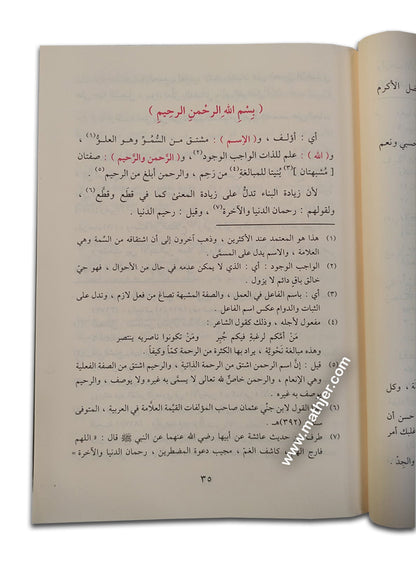 ( بِسْمِ اللهِ الرحْمنِ الرحِيمِ )
أي : أؤلـف ، و( الإسـم ) : مشتـق مـن السُّمُـوِّ وهـو العلـوُّ(١) ،
و( الله ) : علم للذات الواجب الوجود(٢) ، و( الرَّحمن والرَّحيم ) : صفتان
[ مُشبهتان ](٣) بُنيتا للمبالغةِ(٤) من رَحِم ، والرحمن أبلغ من الرحيم(٥)
لأن زيادة البناء تدلُّ على زيادة المعنىٰ كما في قَطَع وقَطَّع(٦) ،
ولقولهم : رحمان الدنيا والآخرة(٧) ، وقيل : رحيم الدنيا .
(١) هذا هو المعتمد عند الأكثرين ، وذهب آخرون إلى أن اشتقاقه من السِّمة وهي
العلامة ، والاسم يدل على المسمَّى .
(٢) الواجب الوجود : أي : الذي لا يمكن عدمه في حال من الأحوال ، فهو حيّ
خالق باقٍ دائم لا يزول .
(٣) أي : باسم الفاعل في العمل ، والصفة المشبهة تصاغ من فعل لازم ، وتدل على
الثبات والدوام عكس اسم الفاعل .
(٤) مفعول لأجله ، وذلك كقول الشاعر :
مَنْ أمَّكم لرغبةٍ فيكم جُبِر ومَنْ تكونوا ناصريه ينتصر
وهذه مبالغة نَحْويَّة ، يراد بها الكثرة من الرحمة كمّاً وكيفاً .
(٥) قيل : إنَّ اسم الرحمن اشتق من الرحمة الذاتية ، والرحيم اشتق من الصفة الفعلية
وهي الإنعام ، والرحمن خاصٌّ لله تعالى لا يسمَّى به غيره ولا يوصف ، والرحيم
يوصف به غيره .
(٦) القول لابن جنّي عثمان صاحب المؤلفات القيِّمة العلَّامة في العربية ، المتوفى
(٣٩٢)هـ .
(٧) طرف حديث عائشة عن أبيها رضي الله عنهما عن النبي ﷺ قال : « اللهم
فارج كاشف الغمِّ ، مجيب دعوة المضطرين ، رحمان الدنيا والآخرة »
٣٥
الأكرم
ونعم
، وكل
حسن أن
أمر
www.mathjer.com